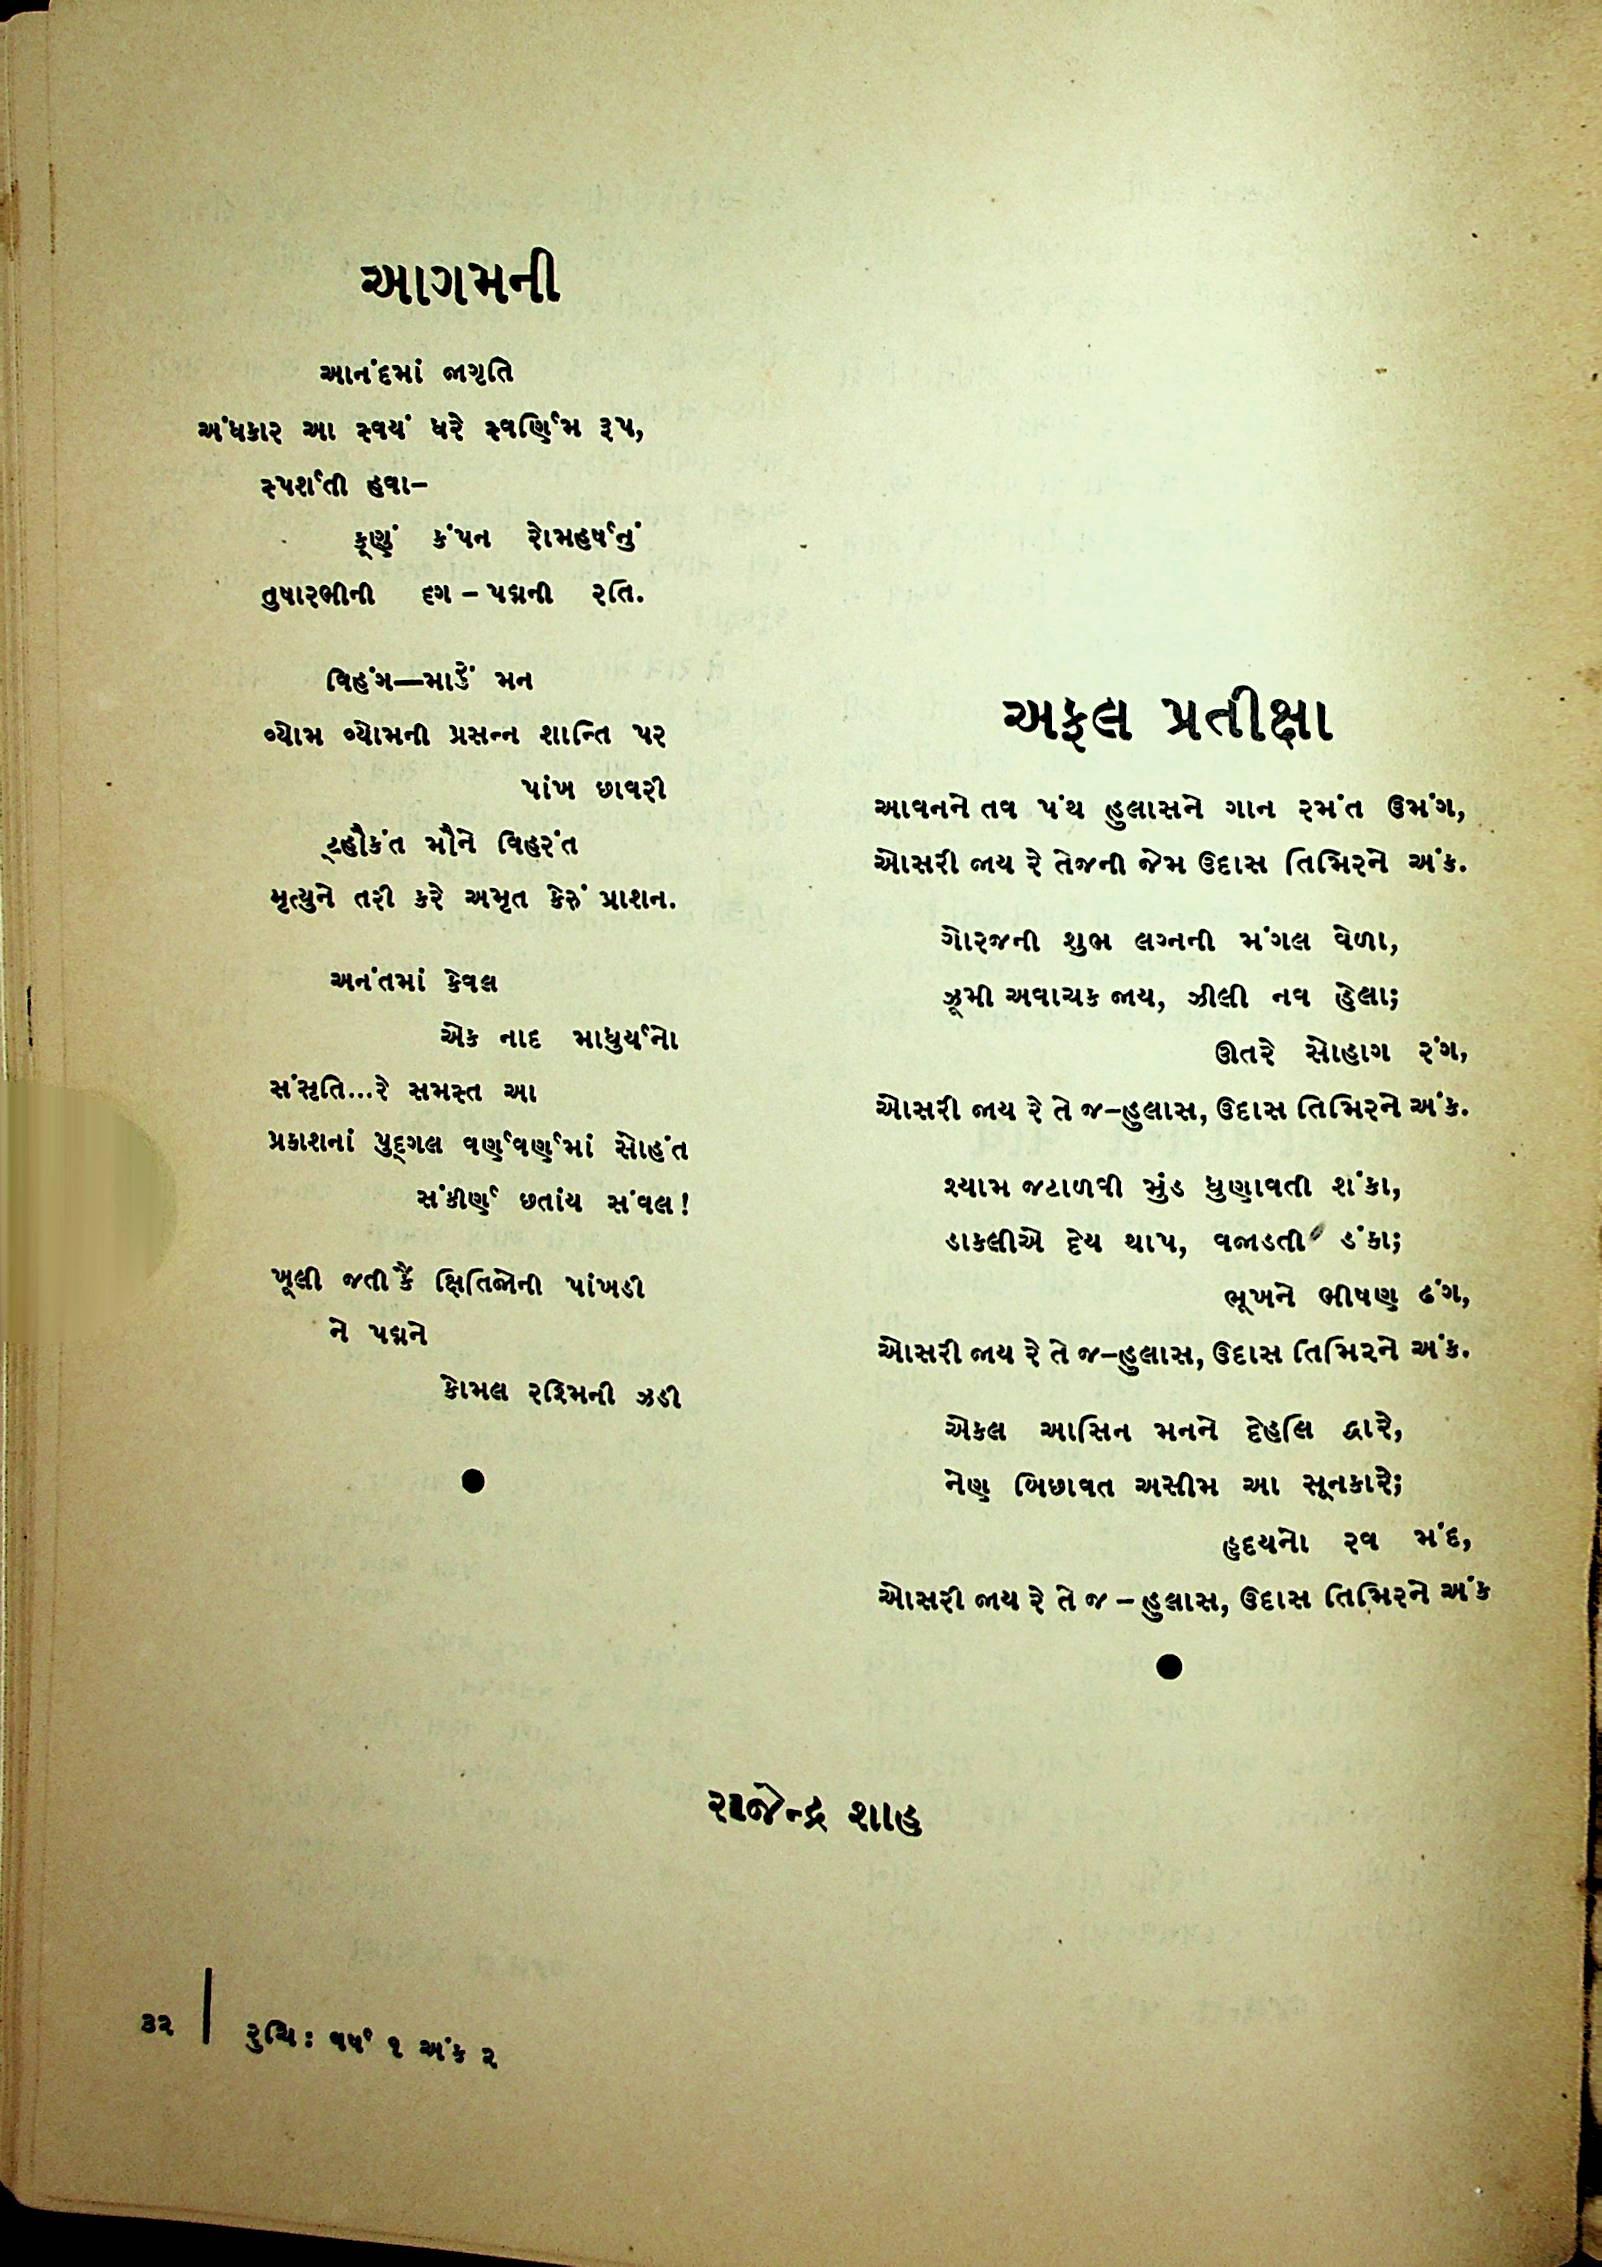 આગમની
આનંદમાં જાગૃતિ
અંધકાર આ સ્વયં ધરે સ્વર્ણિમ રૂપ,
સ્પર્શતી હવા–
કૂણું કંપન રોમહર્ષનું
તુષારભીની દૃગ – પદ્મની રતિ.
વિહંગ—મારું મન
વ્યોમ વ્યોમની પ્રસન્ન શાન્તિ પર
પાંખ છાવરી
ટ્હૌકંત મૌને વિહરંત
મૃત્યુને તરી કરે અમૃત કેરું પ્રાશન.
અનંતમાં કેવલ
એક નાદ માધુર્યનો
સંસૃતિ...રે સમસ્ત આ
પ્રકાશનાં પુદ્ગલ વર્ણવર્ણમાં સોહંત
સંકીર્ણ છતાંય સંવલ !
ખૂલી જતી કૈં ક્ષિતિજોની પાંખડી
ને પદ્મને
કોમલ રશ્મિની ઝડી
અફલ પ્રતીક્ષા
આવનને તવ પંથ હુલાસને ગાન રમંત ઉમંગ,
ઓસરી જાય રે તેજની જેમ ઉદાસ તિમિરને અંક.
ગોરજની શુભ લગ્નની મંગલ વેળા,
ઝૂમી અવાચક જાય, ઝીલી નવ હેલા;
ઊતરે સોહાગ રંગ,
ઓસરી જાય રે તે જ–હુલાસ, ઉદાસ તિમિરને અંક.
શ્યામ જટાળવી મુંડ ધુણાવતી શંકા,
ડાકલીએ દેય થાપ, વજાડતી ડંકા;
ભૂખને ભીષણ ઢંગ,
ઓસરી જાય રે તે જ–હુલાસ, ઉદાસ તિમિરને અંક.
એકલ આસિન મનને દેહલિ દ્વારે,
નેણ બિછાવત અસીમ આ સૂનકારે;
હૃદયનો રવ મંદ,
ઓસરી જાય રે તે જ – હુલાસ, ઉદાસ તિમિરને અંક
રાજેન્દ્ર શાહ
૩૨ | રુચિ : વર્ષ ૧ અંક ૨